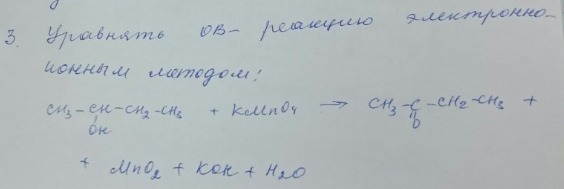 3. Уравнять ОВ- реакцию электронно-
ионным методом:
CH3-CH-CH2-CH3 + KMnO4 → CH3-C-CH2-CH3 +
OH O
+ MnO2 + KOH + H2O